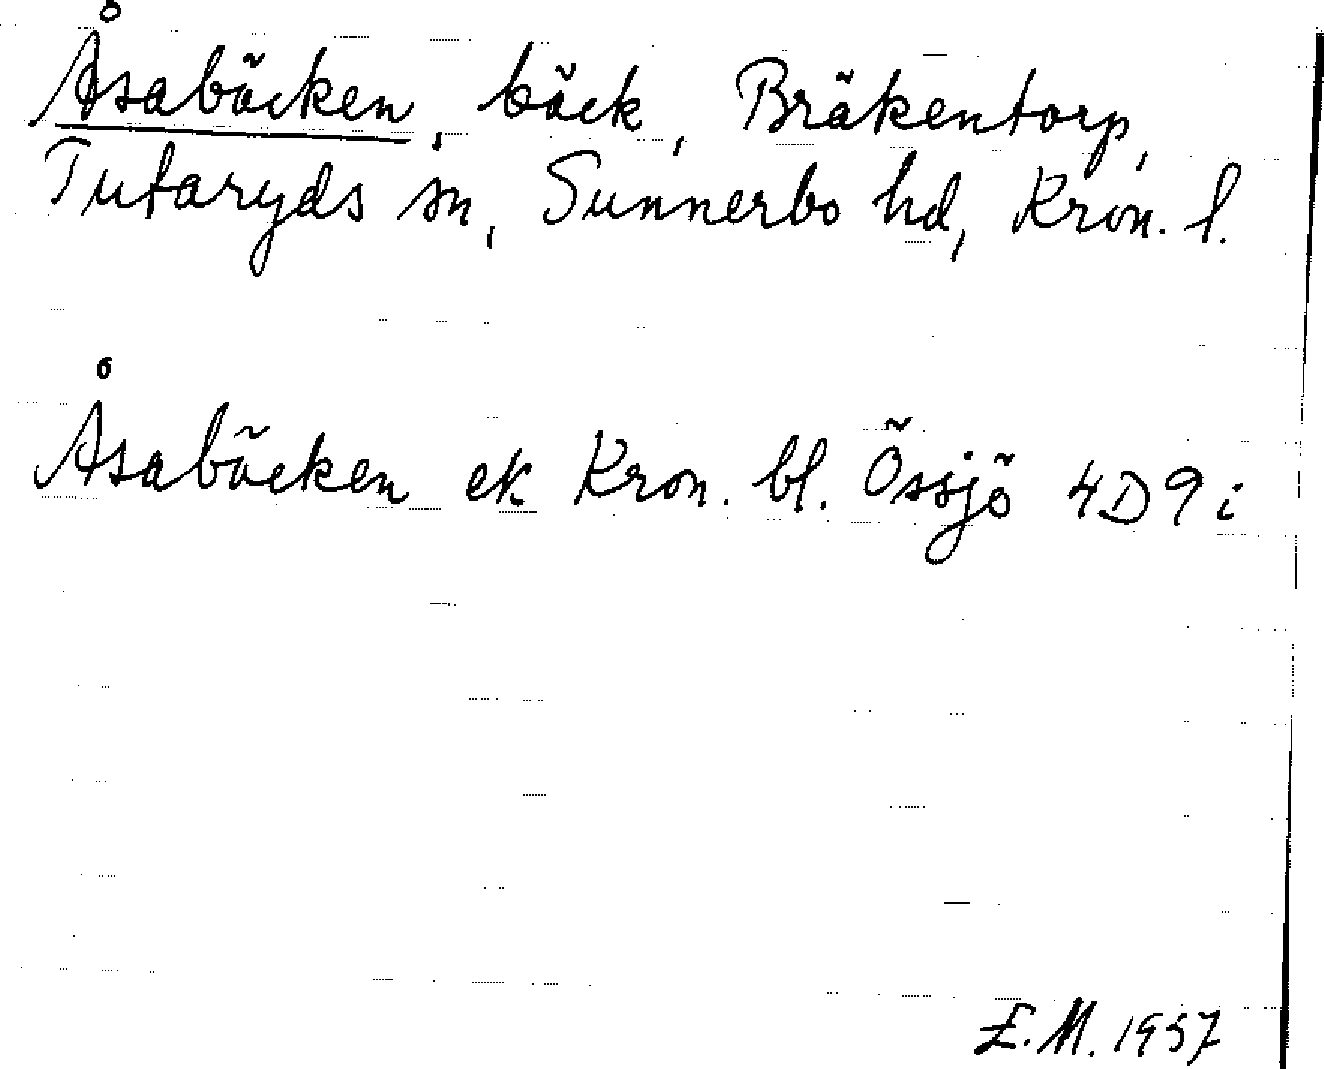 Åsabäcken, bäck, Bräkentorp,
Tutaryds sn, Sunnerbo hd, Kron. l.
Åsabäcken ek Kron. bl. Össjö 4D9i
E.M. 1957